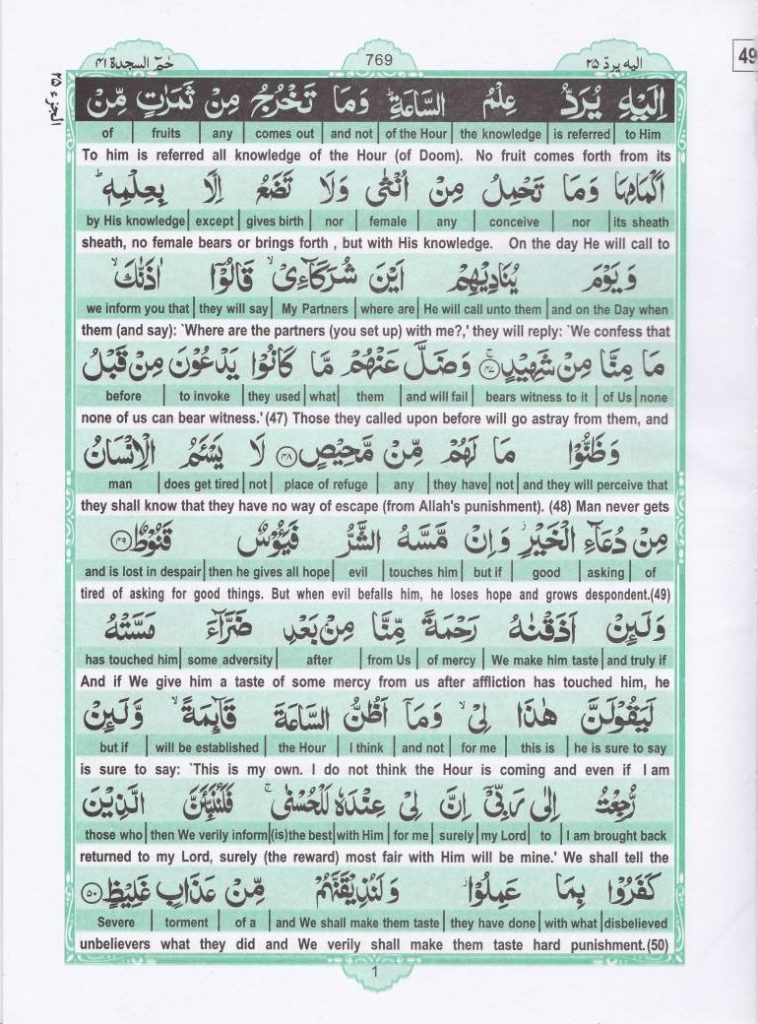 حٰمٓ السجدة ٤١
769
اليه يردّ ٢٥
49
الجزء ٢٥
اِلَيْهِ يُرَدُّ عِلْمُ السَّاعَةِ ؕ وَمَا تَخْرُجُ مِنْ ثَمَرٰتٍ مِّنْ
to Him | is referred | the knowledge | of the Hour | and not | comes out | any | fruits | of
To him is referred all knowledge of the Hour (of Doom). No fruit comes forth from its
اَكْمَامِهَا وَمَا تَحْمِلُ مِنْ اُنْثٰى وَلَا تَضَعُ اِلَّا بِعِلْمِهٖ ؕ
its sheath | nor | conceive | any | female | nor | gives birth | except | by His knowledge
sheath, no female bears or brings forth , but with His knowledge. On the day He will call to
وَيَوْمَ يُنَادِيْهِمْ اَيْنَ شُرَكَآءِيْ ۙ قَالُوْۤا اٰذَنّٰكَ ۙ
and on the Day when | He will call unto them | where are | My Partners | they will say | we inform you that
them (and say): `Where are the partners (you set up) with me?,' they will reply: `We confess that
مَا مِنَّا مِنْ شَهِيْدٍ ۚ ﴿٤٧﴾ وَضَلَّ عَنْهُمْ مَّا كَانُوْا يَدْعُوْنَ مِنْ قَبْلُ
none | of Us | bears witness to it | and will fail | them | what | they used | to invoke | before
none of us can bear witness.' (47) Those they called upon before will go astray from them, and
وَظَنُّوْا مَا لَهُمْ مِّنْ مَّحِيْصٍ ﴿٤٨﴾ لَا يَسْـَٔمُ الْاِنْسَانُ
and they will perceive that | not | they have | any | place of refuge | not | does get tired | man
they shall know that they have no way of escape (from Allah's punishment). (48) Man never gets
مِنْ دُعَآءِ الْخَيْرِ ۫ وَاِنْ مَّسَّهُ الشَّرُّ فَيَـُٔوْسٌ قَنُوْطٌ ﴿٤٩﴾
of | asking | good | but if | touches him | evil | then he gives all hope | and is lost in despair
tired of asking for good things. But when evil befalls him, he loses hope and grows despondent.(49)
وَلَىِٕنْ اَذَقْنٰهُ رَحْمَةً مِّنَّا مِنْۢ بَعْدِ ضَرَّآءَ مَسَّتْهُ
and truly if | We make him taste | of mercy | from Us | after | some adversity | has touched him
And if We give him a taste of some mercy from us after affliction has touched him, he
لَيَقُوْلَنَّ هٰذَا لِيْ ۙ وَمَاۤ اَظُنُّ السَّاعَةَ قَآىِٕمَةً ۙ وَّلَىِٕنْ
he is sure to say | this is | for me | and not | I think | the Hour | will be established | but if
is sure to say: `This is my own. I do not think the Hour is coming and even if I am
رُّجِعْتُ اِلٰى رَبِّيْۤ اِنَّ لِيْ عِنْدَهٗ لَلْحُسْنٰى ۚ فَلَنُنَبِّئَنَّ الَّذِيْنَ
I am brought back | to | my Lord | surely | for me | with Him | (is)the best | then We verily inform | those who
returned to my Lord, surely (the reward) most fair with Him will be mine.' We shall tell the
كَفَرُوْا بِمَا عَمِلُوْا ۫ وَلَنُذِيْقَنَّهُمْ مِّنْ عَذَابٍ غَلِيْظٍ ﴿٥٠﴾
disbelieved | with what | they have done | and We shall make them taste | of a | torment | Severe
unbelievers what they did and We verily shall make them taste hard punishment.(50)
1